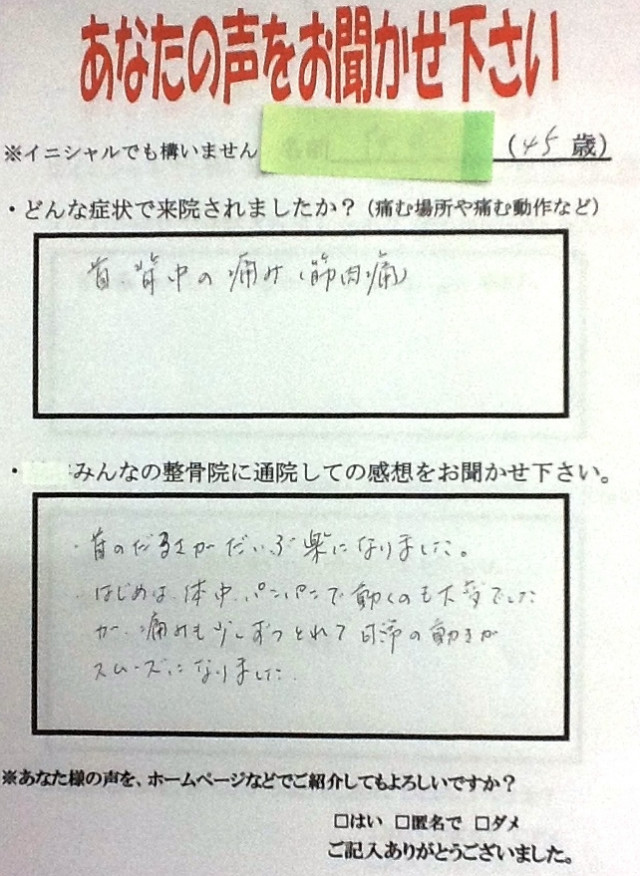 あなたの声をお聞かせ下さい
※イニシャルでも構いません 名前 (45 歳)
・どんな症状で来院されましたか？(痛む場所や痛む動作など)
首 背中の痛み(筋肉痛)
・みんなの整骨院に通院しての感想をお聞かせ下さい。
・首のだるさがだいぶ楽になりました。
・はじめは、体中、パンパンで動くのも大変でした
が、痛みも少しずつとれて日常の動きが
スムーズになりました
※あなた様の声を、ホームページなどでご紹介してもよろしいですか？
□はい □匿名で □ダメ
ご記入ありがとうございました。